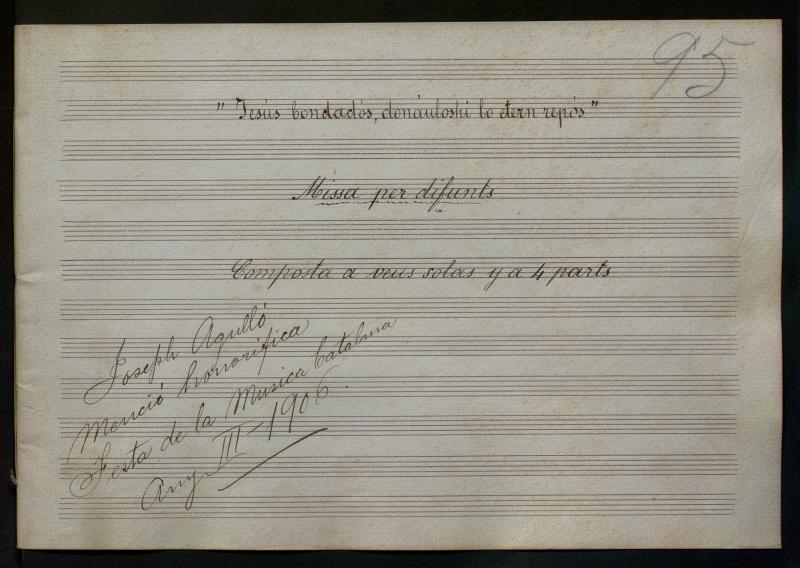 95
"Jesús bondadós, donáuloshi lo etern repós"
Missa per difunts
Composta a veus solas y a 4 parts
Joseph Agulló
Menció honorífica
Festa de la Musica Catalana
Any III - 1906.